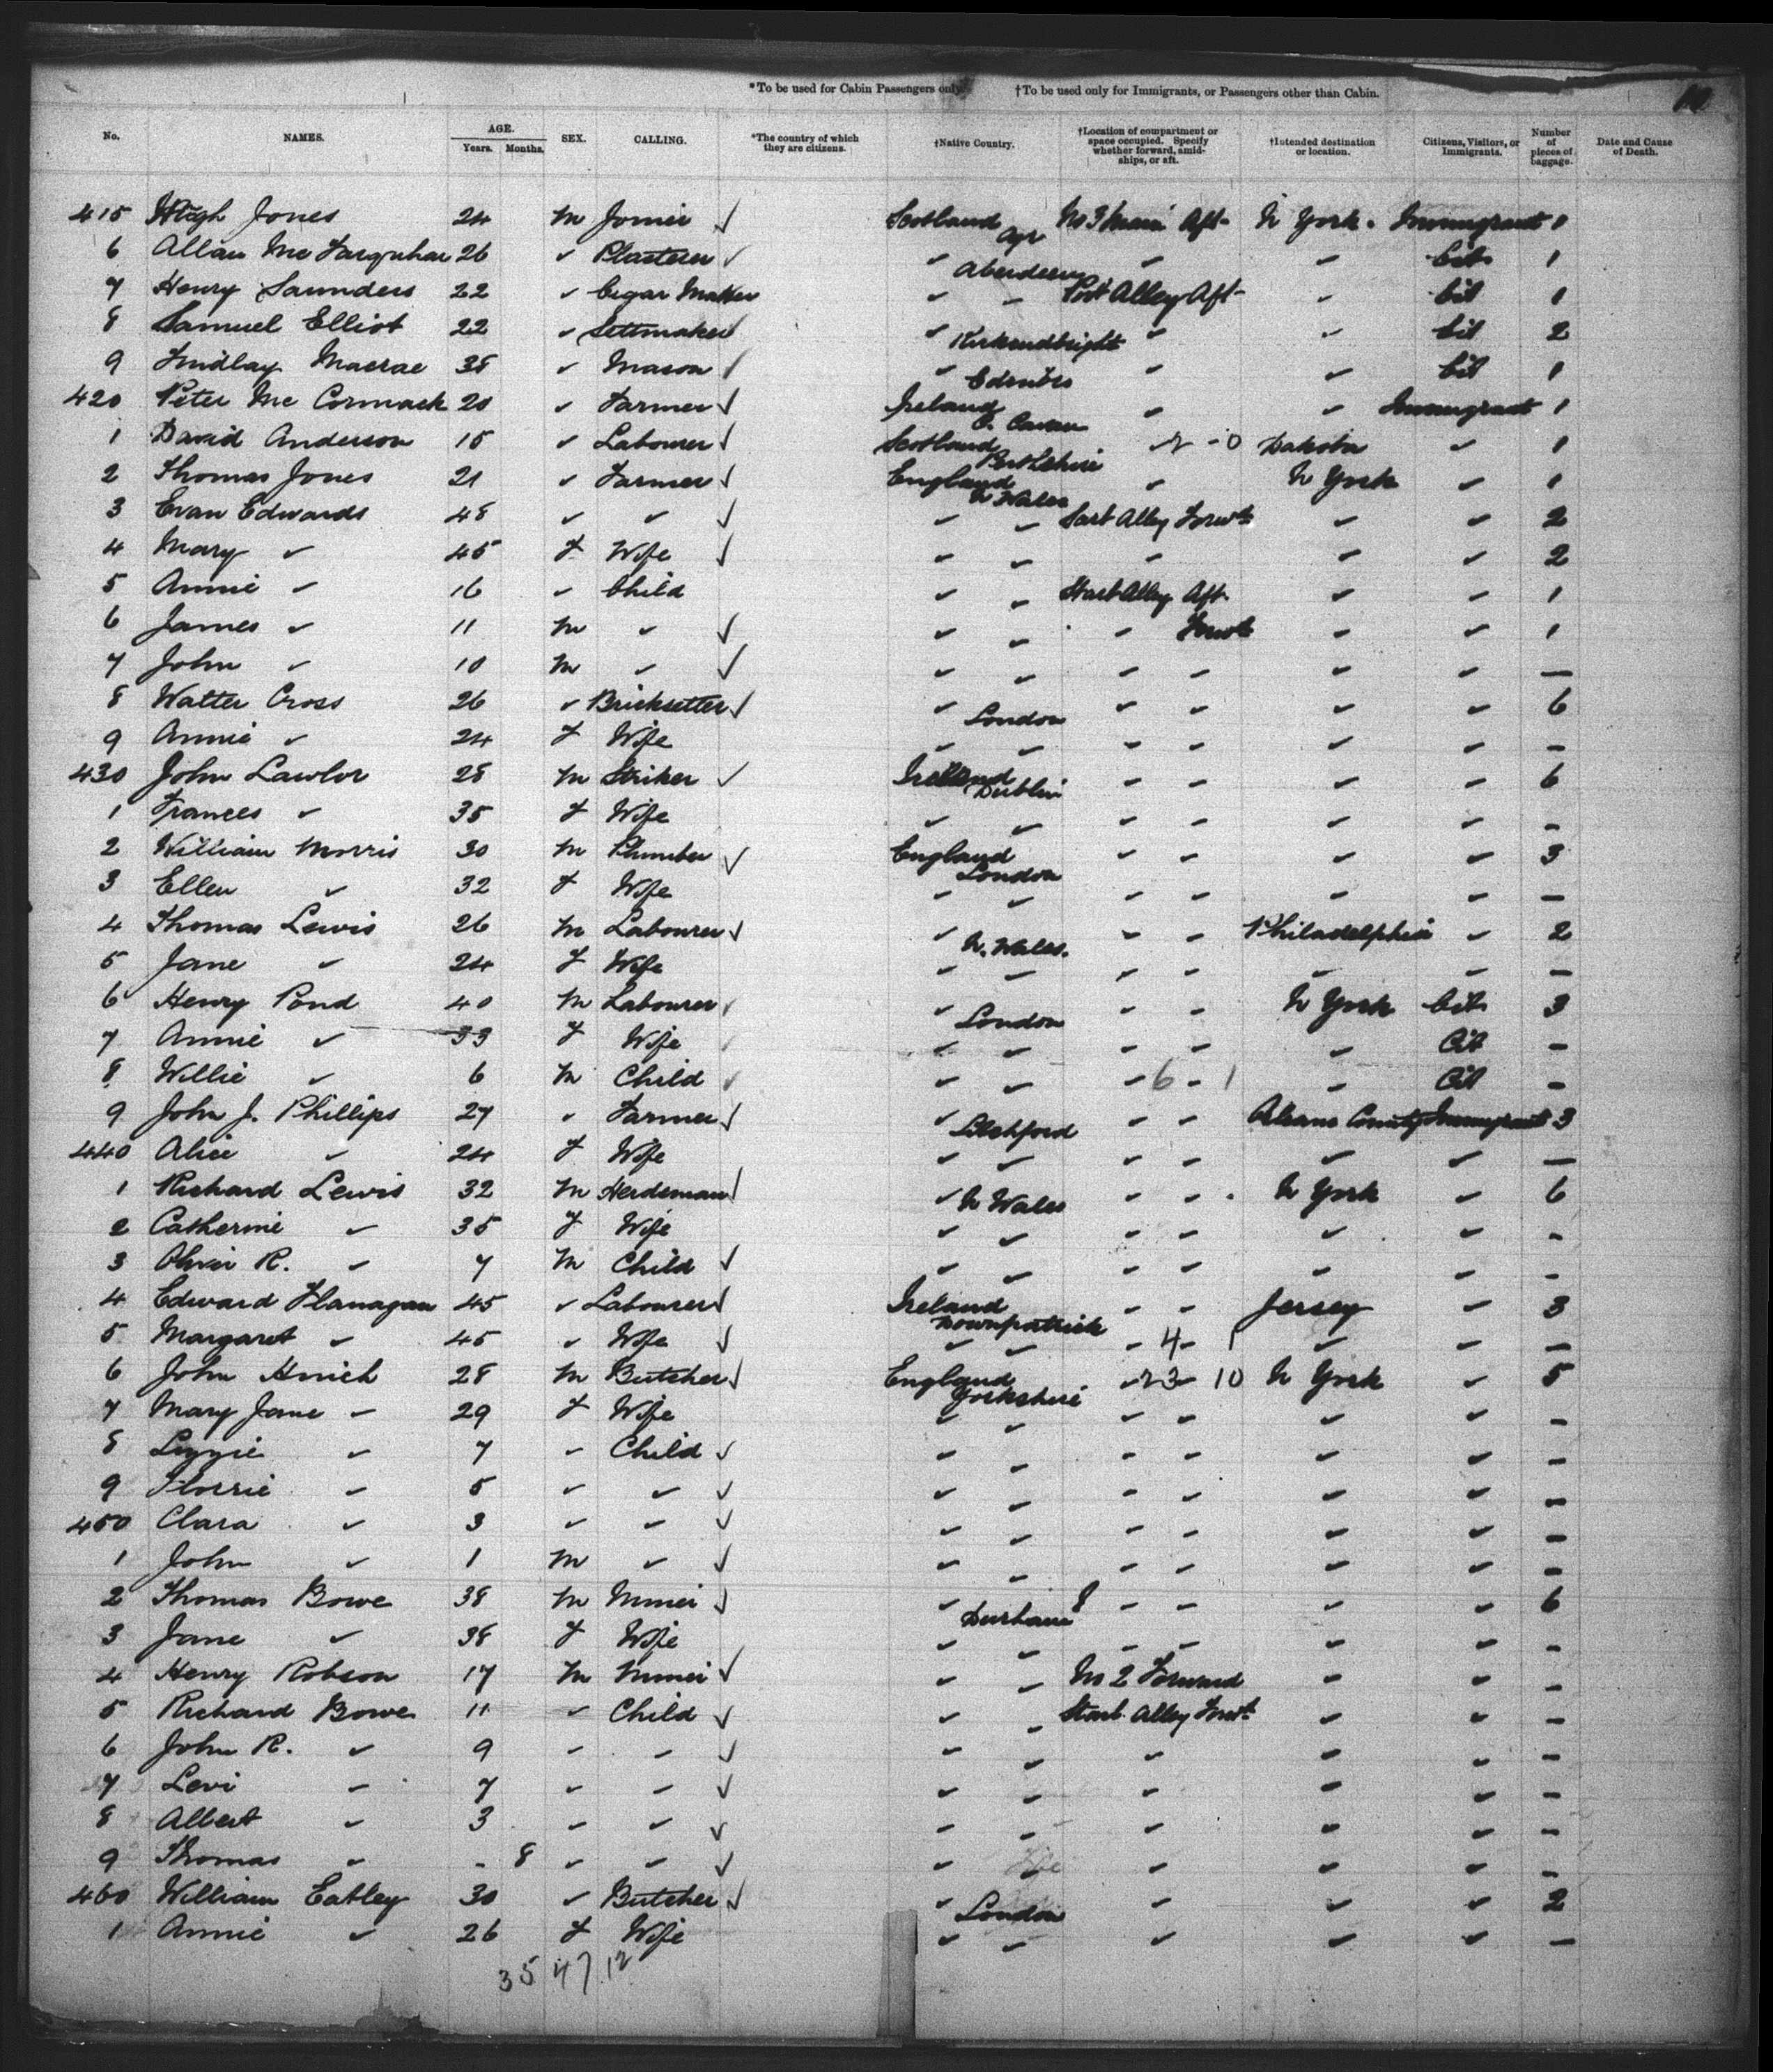 *To be used for Cabin Passengers only. †To be used only for Immigrants, or Passengers other than Cabin.
No. NAMES. AGE. Years. Months. SEX. CALLING. *The country of which they are citizens. †Native Country. †Location of compartment or space occupied. Specify whether forward, amidships, or aft. †Intended destination or location. Citizens, Visitors, or Immigrants. Number of pieces of baggage. Date and Cause of Death.
415 Hugh Jones 24 M Joiner ✓ Scotland Ayr No 3 Main Aft N York Immigrant 1
6 Allan Mc Farquhar 26 ✓ Plasterer ✓ ✓ Aberdeen ✓ ✓ Cit 1
7 Henry Saunders 22 ✓ Cigar Maker ✓ ✓ Port Alley Aft ✓ Cit 1
8 Samuel Elliot 22 ✓ Settmaker ✓ ✓ Kirkcudbright ✓ ✓ Cit 2
9 Findlay Macrae 35 ✓ Mason ✓ ✓ Edinbro ✓ ✓ Cit 1
420 Peter Mc Cormack 20 ✓ Farmer ✓ Ireland C. Cavan ✓ ✓ Immigrant 1
1 David Anderson 15 ✓ Labourer ✓ Scotland Perthshire ✓ Dakota ✓ 1
2 Thomas Jones 21 ✓ Farmer ✓ England N Wales ✓ N York ✓ 1
3 Evan Edwards 48 ✓ ✓ ✓ ✓ ✓ Start Alley Forwd ✓ ✓ 2
4 Mary ✓ 45 F Wife ✓ ✓ ✓ ✓ ✓ ✓ 2
5 Annie ✓ 16 ✓ Child ✓ ✓ Starb Alley Aft ✓ ✓ 1
6 James ✓ 11 M ✓ ✓ ✓ ✓ ✓ Forwd ✓ ✓ 1
7 John ✓ 10 M ✓ ✓ ✓ ✓ ✓ ✓ ✓ ✓ —
8 Walter Cross 26 ✓ Bricksetter ✓ ✓ London ✓ ✓ ✓ ✓ 6
9 Annie ✓ 24 F Wife ✓ ✓ ✓ ✓ ✓ ✓ —
430 John Lawlor 28 M Striker ✓ Ireland Dublin ✓ ✓ ✓ ✓ 6
1 Frances ✓ 35 F Wife ✓ ✓ ✓ ✓ ✓ ✓ —
2 William Morris 30 M Plumber ✓ England London ✓ ✓ ✓ ✓ 3
3 Ellen ✓ 32 F Wife ✓ ✓ ✓ ✓ ✓ ✓ —
4 Thomas Lewis 26 M Labourer ✓ ✓ N. Wales. ✓ ✓ Philadelphia ✓ 2
5 Jane ✓ 24 F Wife ✓ ✓ ✓ ✓ ✓ ✓ —
6 Henry Pond 40 M Labourer ✓ ✓ London ✓ ✓ N York Cit 3
7 Annie ✓ 33 F Wife ✓ ✓ ✓ ✓ ✓ ✓ Cit —
8 Willie ✓ 6 M Child ✓ ✓ ✓ 6 - 1 ✓ Cit —
9 John J. Phillips 27 ✓ Farmer ✓ ✓ ✓ ✓ County Immigrant 3
440 Alice ✓ 24 F Wife ✓ ✓ ✓ ✓ ✓ ✓ —
1 Richard Lewis 32 M Herdsman ✓ ✓ N Wales ✓ ✓ N York ✓ 6
2 Catherine ✓ 35 F Wife ✓ ✓ ✓ ✓ ✓ ✓ —
3 Oliver R. ✓ 7 M Child ✓ ✓ ✓ ✓ ✓ ✓ ✓ —
4 Edward Flanagan 45 ✓ Labourer ✓ Ireland Downpatrick ✓ ✓ Jersey ✓ 3
5 Margaret ✓ 45 ✓ Wife ✓ ✓ ✓ 4 - 1 ✓ ✓ —
6 John Hnich 28 M Butcher ✓ England Yorkshire 23 10 N York ✓ 5
7 Mary Jane ✓ 29 F Wife ✓ ✓ ✓ ✓ ✓ ✓ —
8 Lizzie ✓ 7 ✓ Child ✓ ✓ ✓ ✓ ✓ ✓ ✓ —
9 Florrie ✓ 5 ✓ ✓ ✓ ✓ ✓ ✓ ✓ ✓ ✓ —
450 Clara ✓ 3 ✓ ✓ ✓ ✓ ✓ ✓ ✓ ✓ ✓ —
1 John ✓ 1 M ✓ ✓ ✓ ✓ ✓ ✓ ✓ ✓ —
2 Thomas Bowe 38 M Miner ✓ ✓ Durham ✓ ✓ ✓ ✓ 6
3 Jane ✓ 38 F Wife ✓ ✓ ✓ ✓ ✓ ✓ —
4 Henry Robson 17 M Miner ✓ ✓ ✓ No 2 Forward ✓ ✓ —
5 Richard Bowe 11 ✓ Child ✓ ✓ ✓ Starb Alley Forwd ✓ ✓ —
6 John R. ✓ 9 ✓ ✓ ✓ ✓ ✓ ✓ ✓ ✓ —
7 Levi ✓ 7 ✓ ✓ ✓ ✓ ✓ ✓ ✓ ✓ —
8 Albert ✓ 3 ✓ ✓ ✓ ✓ ✓ ✓ ✓ ✓ —
9 Thomas ✓ - 8 ✓ ✓ ✓ ✓ ✓ ✓ ✓ ✓ —
460 William Eatley 30 ✓ Butcher ✓ ✓ London ✓ ✓ ✓ 2
1 Annie ✓ 26 F Wife ✓ ✓ ✓ ✓ ✓ —
35 47 12